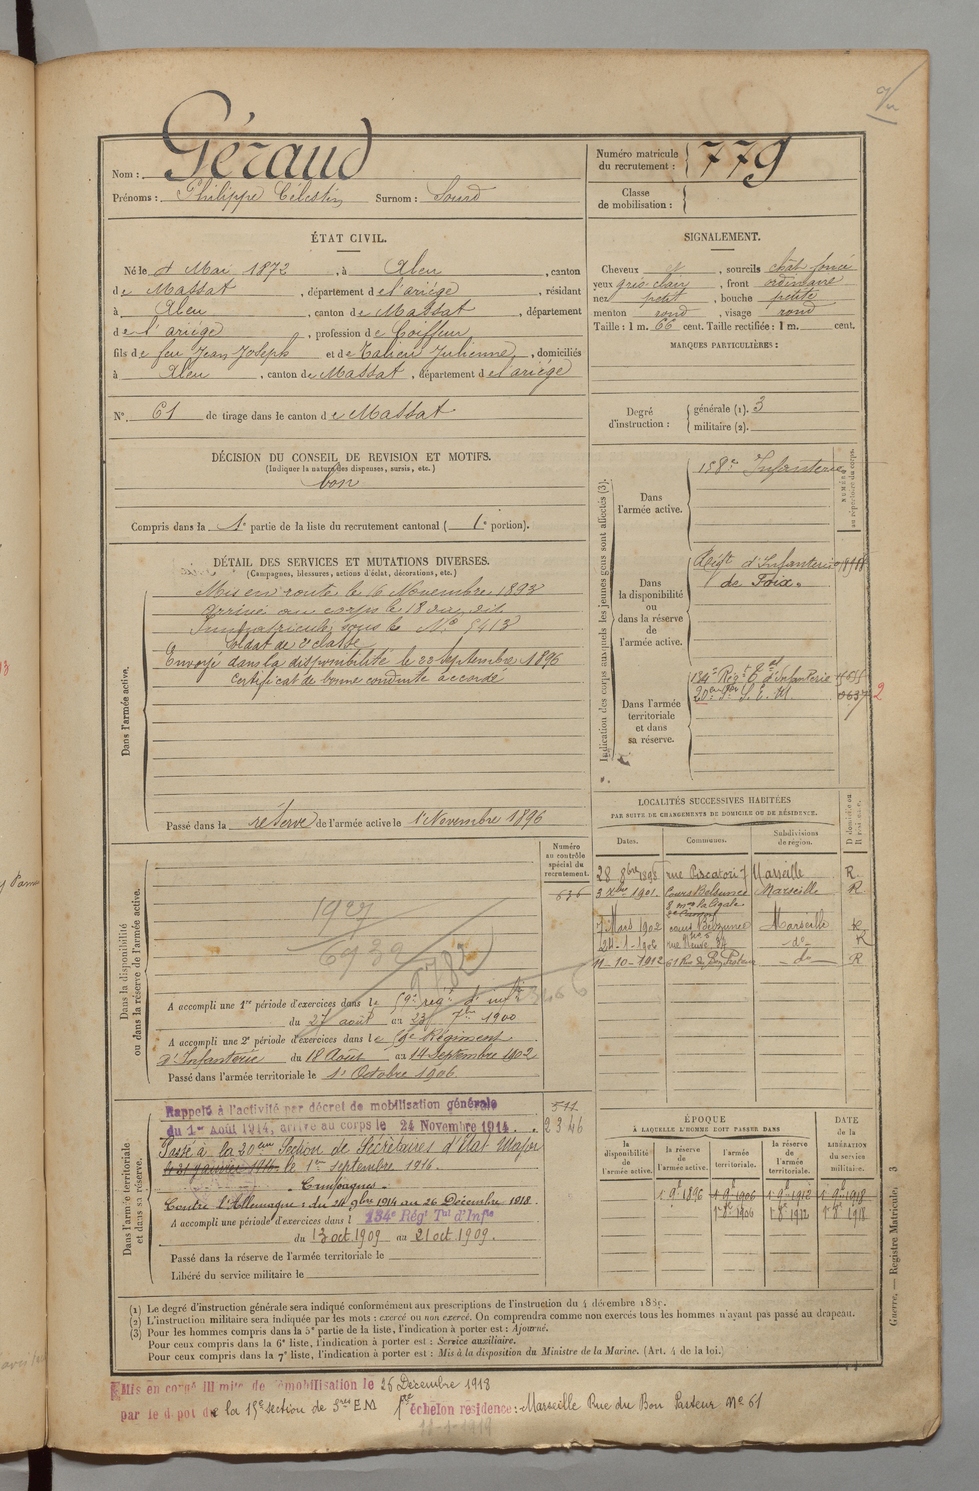 Nom : Géraud
Prénoms : Philippe Célestin Surnom : Sourd
Numéro matricule du recrutement : 779
Classe de mobilisation :
ÉTAT CIVIL.
Né le 4 Mai 1872, à Aleu, canton
de Massat, département de l'ariège, résidant
à Aleu, canton de Massat, département
de l'ariège, profession de Coiffeur
fils de feu Jean Joseph et de Talieu Julienne, domiciliés
à Aleu, canton de Massat, département de l'ariège
N° 61 de tirage dans le canton de Massat
SIGNALEMENT.
Cheveux , sourcils chât foncé
yeux gris clair, front ordinaire
nez petit, bouche petite
menton rond, visage rond
Taille : 1 m. 66 cent. Taille rectifiée : 1 m. cent.
MARQUES PARTICULIÈRES :
Degré d'instruction : générale (1). 3
militaire (2).
DÉCISION DU CONSEIL DE REVISION ET MOTIFS.
(Indiquer la nature des dispenses, sursis, etc.)
bon
Compris dans la 1e partie de la liste du recrutement cantonal (1e portion).
DÉTAIL DES SERVICES ET MUTATIONS DIVERSES.
(Campagnes, blessures, actions d'éclat, décorations, etc.)
Dans l'armée active.
Mis en route le 16 Novembre 1893
arrivé au corps le 18 du dit
Immatriculé sous le N° 5413
Soldat de 2e classe
Envoyé dans la disponibilité le 23 septembre 1896
Certificat de bonne conduite accordé
Passé dans la réserve de l'armée active le 1 Novembre 1896
Indication des corps auxquels les jeunes gens sont affectés (3).
NUMÉRO au répertoire du corps.
Dans l'armée active.
158e Infanterie
Dans la disponibilité ou dans la réserve de l'armée active.
Régt d'Infanterie
de Foix.
Dans l'armée territoriale et dans sa réserve.
134e Régt Tal d'Infanterie
20e Son S. E. M.
2
LOCALITÉS SUCCESSIVES HABITÉES
PAR SUITE DE CHANGEMENTS DE DOMICILE OU DE RÉSIDENCE.
Dates. Communes. Subdivisions de région. D domicile ou R résidence.
28 8bre 1898 rue Piscatoris 7 Marseille R.
3 Xbre 1901. Cours Belsunce Marseille R
7 Mars 1902 cours Belzunce Marseille R
24-1-1906 rue Neuve 24 -do- R
11-10-1912 61 Rue du Bon Pasteur -do- R
Dans la disponibilité ou dans la réserve de l'armée active.
Numéro au contrôle spécial du recrutement.
636
1927
6932
9782
3466
A accompli une 1re période d'exercices dans le 59e régt d'infie
du 27 août au 23 7bre 1900
A accompli une 2e période d'exercices dans le 59e Régiment
d'Infanterie du 18 Août au 14 Septembre 1902
Passé dans l'armée territoriale le 1 Octobre 1906
Dans l'armée territoriale et dans sa réserve.
Rappelé à l'activité par décret de mobilisation générale
du 1er Août 1914, arrivé au corps le 24 Novembre 1914.
511
2346
Passé à la 20ème Section de Secrétaires d'Etat Major
le 31 janvier 1916. le 1er septembre 1916.
Campagnes.
Contre l'Allemagne : du 24 9bre 1914 au 26 Décembre 1918.
A accompli une période d'exercices dans l 134e Régt Tal d'Infie
du 13 oct 1909 au 21 oct 1909.
Passé dans la réserve de l'armée territoriale le
Libéré du service militaire le
ÉPOQUE
À LAQUELLE L'HOMME DOIT PASSER DANS
la disponibilité de l'armée active. la réserve de l'armée active. l'armée territoriale. la réserve de l'armée territoriale.
DATE de la LIBÉRATION du service militaire.
1 9bre 1896 1 9bre 1906 1 9bre 1912 1 9bre 1918
1 8bre 1906 1 8bre 1912 1 8bre 1918
Guerre. — Registre Matricule. 3
(1) Le degré d'instruction générale sera indiqué conformément aux prescriptions de l'instruction du 4 décembre 1889.
(2) L'instruction militaire sera indiquée par les mots : exercé ou non exercé. On comprendra comme non exercés tous les hommes n'ayant pas passé au drapeau.
(3) Pour les hommes compris dans la 5e partie de la liste, l'indication à porter est : Ajourné.
Pour ceux compris dans la 6e liste, l'indication à porter est : Service auxiliaire.
Pour ceux compris dans la 7e liste, l'indication à porter est : Mis à la disposition du Ministre de la Marine. (Art. 4 de la loi.)
Mis en congé illimité de démobilisation le 26 Décembre 1918
par le dépot de la 15e section de Sres EM 1er échelon residence : Marseille Rue du Bon Pasteur N° 61
11-1-1919